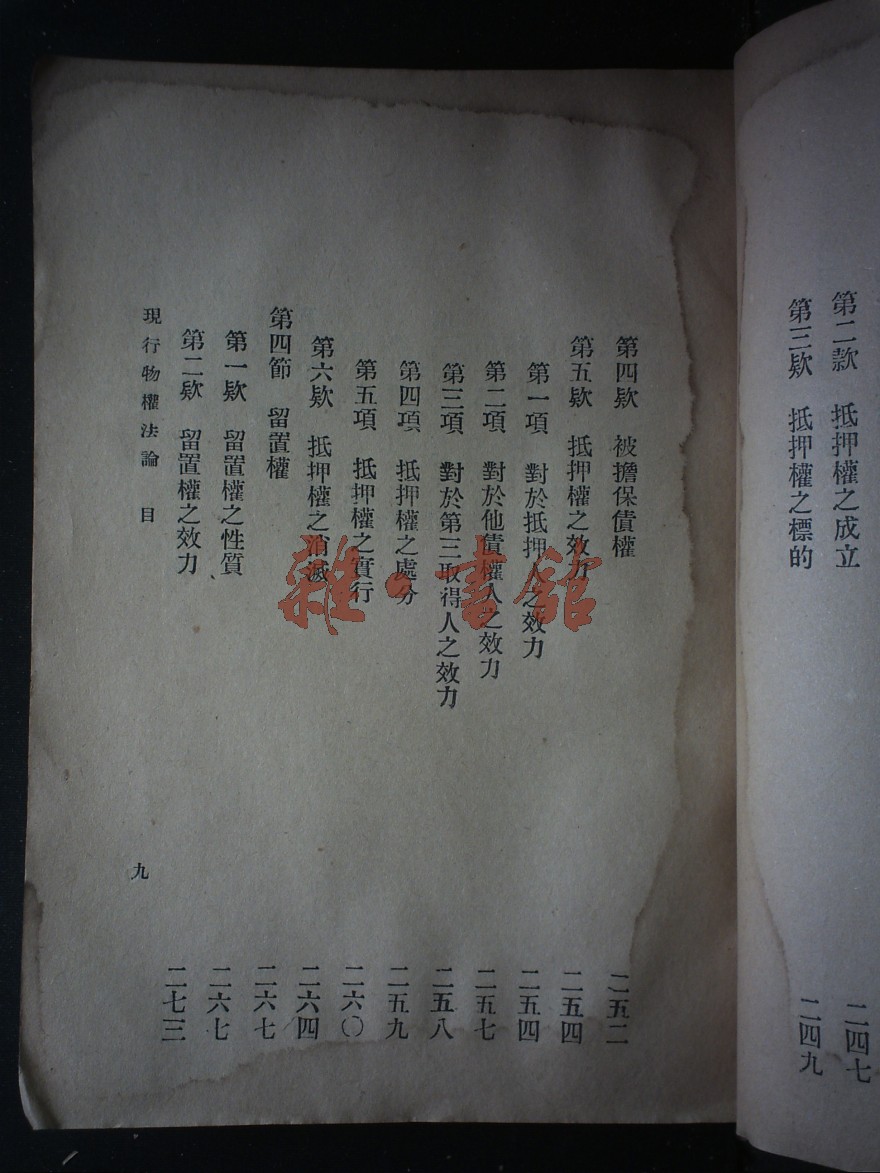 第二款　抵押權之成立　二四七
第三欵　抵押權之標的　二四九
第四欵　被擔保債權　二五二
第五欵　抵押權之效力　二五四
第一項　對於抵押人之效力　二五四
第二項　對於他債權人之效力　二五七
第三項　對於第三取得人之效力　二五八
第四項　抵押權之處分　二五九
第五項　抵押權之實行　二六〇
第六欵　抵押權之消滅　二六四
第四節　留置權　二六七
第一欵　留置權之性質　二六七
第二欵　留置權之效力　二七三
現行物權法論　目　九
雜·書館